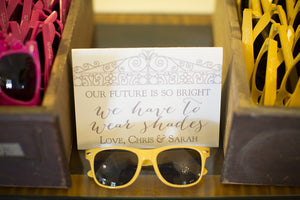 OUR FUTURE IS SO BRIGHT
we have to
wear shades
LOVE, CHRIS & SARAH